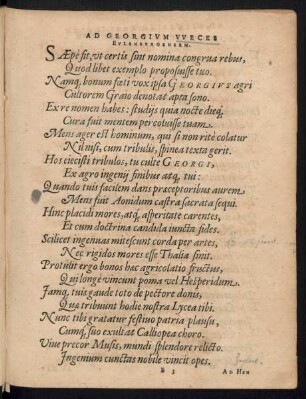 AD GEORGIVM VVECES
EVLENBVRGENSEM.
SÆpè fit, vt certis sint nomina congrua rebus,
Quod libet exemplo proposuisse tuo.
Namq; bonum fœti vox ipsa GEORGIVS agri
Cultorem Graio denotat apta sono.
Ex re nomen habes: studijs quia nocte dieq;
Cura fuit mentem percoluisse tuam.
Mens ager est hominum, qui si non ritè colatur
Nil nisi, cum tribulis, spinea texta gerit.
Hos eiecisti tribulos, tu culte GEORGI,
Ex agro ingenij finibus atq; tui:
Quando tuis facilem dans præceptoribus aurem
Mens fuit Aonidum castra sacrata sequi.
Hinc placidi mores, atq; asperitate carentes,
Et cum doctrina candida iuncta fides.
Scilicet ingenuas mitescunt corda per artes,
Nec rigidos mores esse Thalia sinit.
Protulit ergo bonos hæc agricolatio fructus,
Qui longè vincunt poma vel Hesperidum.
Jamq; tuis gaude toto de pectore donis,
Quæ tribuunt hodie nostra Lycea tibi.
Nunc tibi gratatur festiuo patria plausu,
Cumq; suo exultat Calliopea choro.
Viue precor Musis, mundi splendore relicto.
Ingenium cunctas nobile vincit opes.
B 3
AD HEN